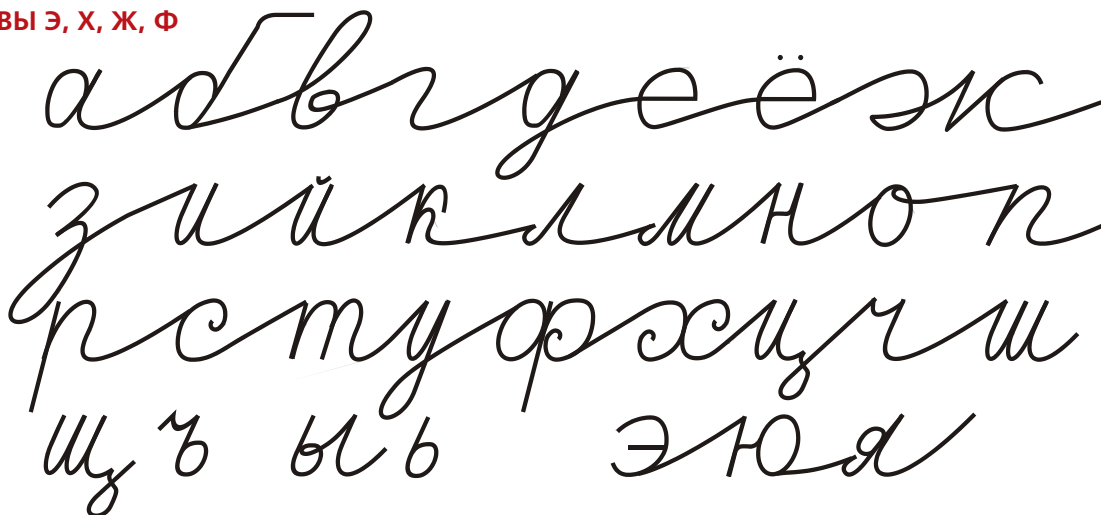 ВЫ Э, Х, Ж, Ф
абвгдеёж
зийклмноп
рстуфхцчш
щъ ыь эюя